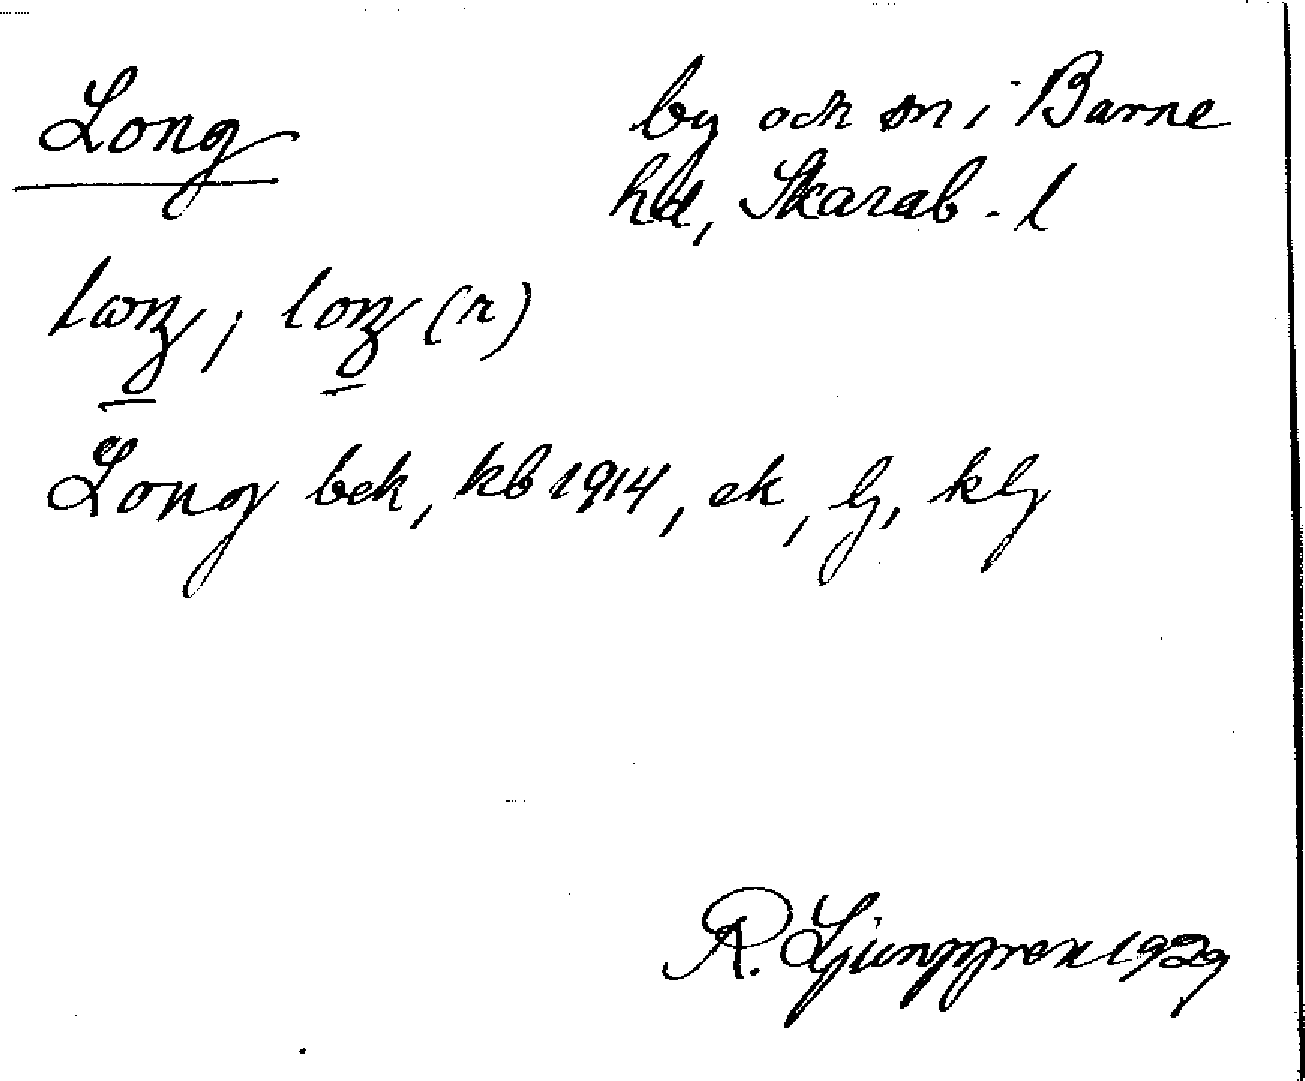 Long
by och sn i Barne
hd, Skarab. l
Long bek, kb 1914, ek, lj, klj
R. Ljunggren 1929